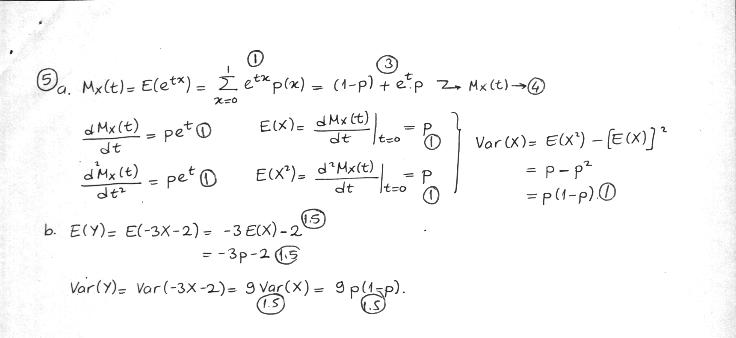 ⑤a. Mx(t) = E(e^tx) = Σ_{x=0}^{1} e^tx p(x) ① = (1-p) + e^t.p ③ → Mx(t) → ④
dMx(t)/dt = pe^t ① E(X) = dMx(t)/dt |t=0 = p ①
d²Mx(t)/dt² = pe^t ① E(X²) = d²Mx(t)/dt |t=0 = p ①
Var(X) = E(X²) - [E(X)]²
= p - p²
= p(1-p). ①
b. E(Y) = E(-3X-2) = -3E(X) - 2 (1.5)
= -3p - 2 (1.5)
Var(Y) = Var(-3X-2) = 9 Var(X) (1.5) = 9 p(1-p). (1.5)